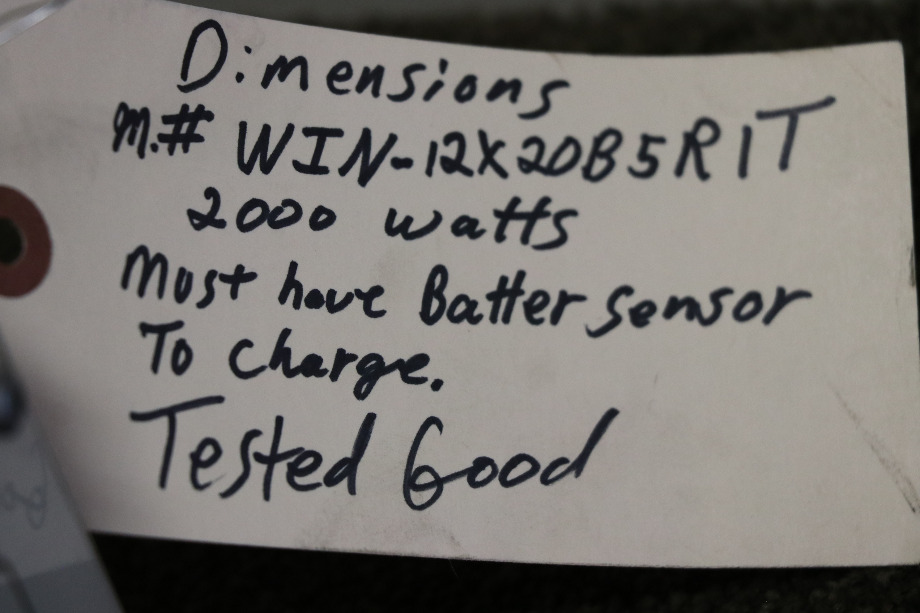 Dimensions
M.# WIN-12X20B5R1T
2000 watts
Must have Batter sensor
To charge.
Tested Good